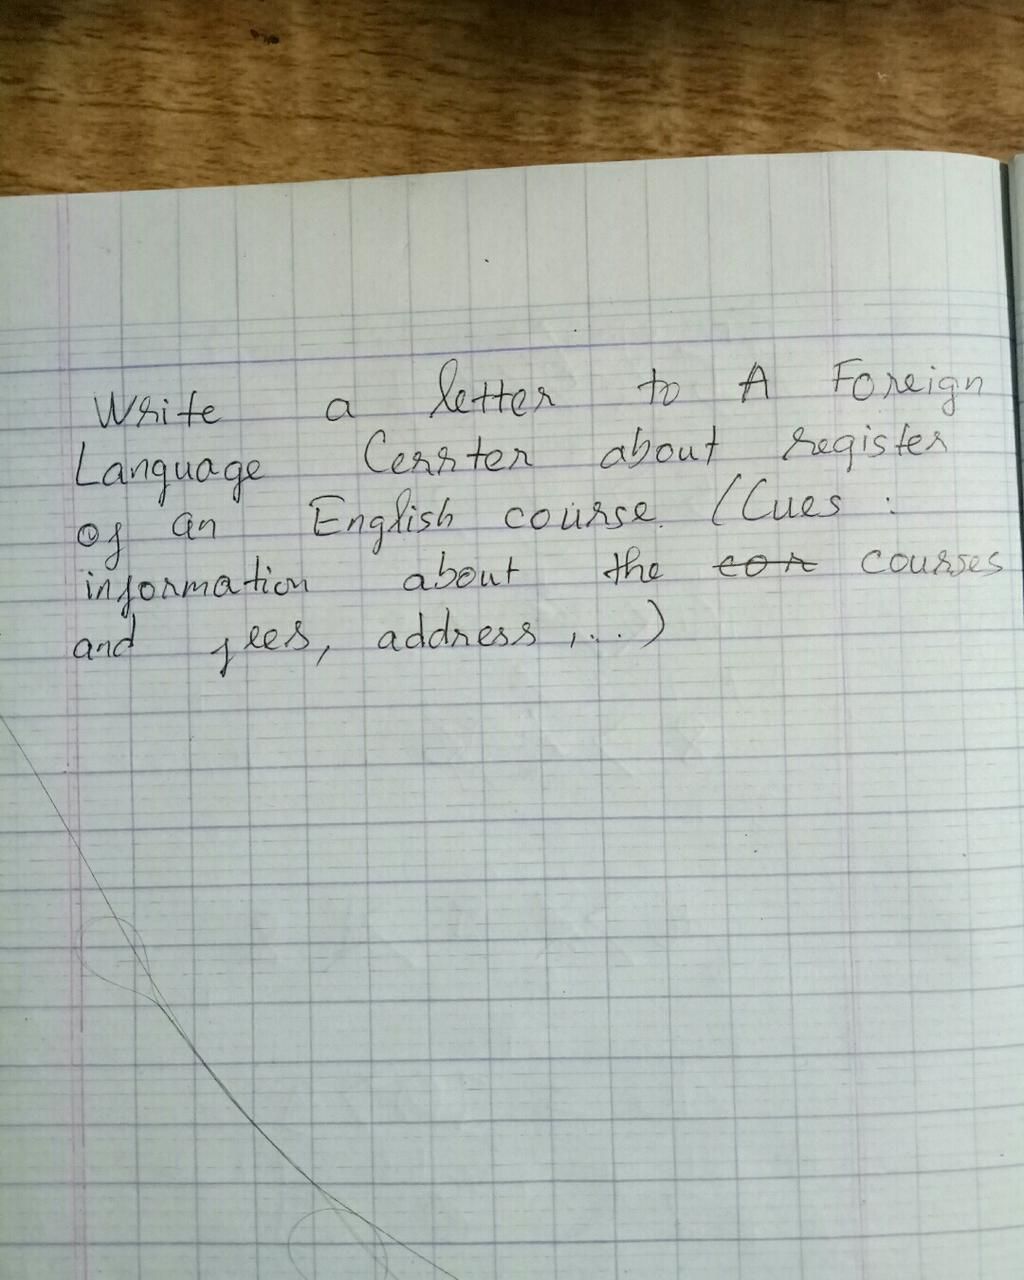 Write a letter to A Foreign
Language Center about register
of an English course. (Cues :
information about the cor courses
and fees, address ,...)